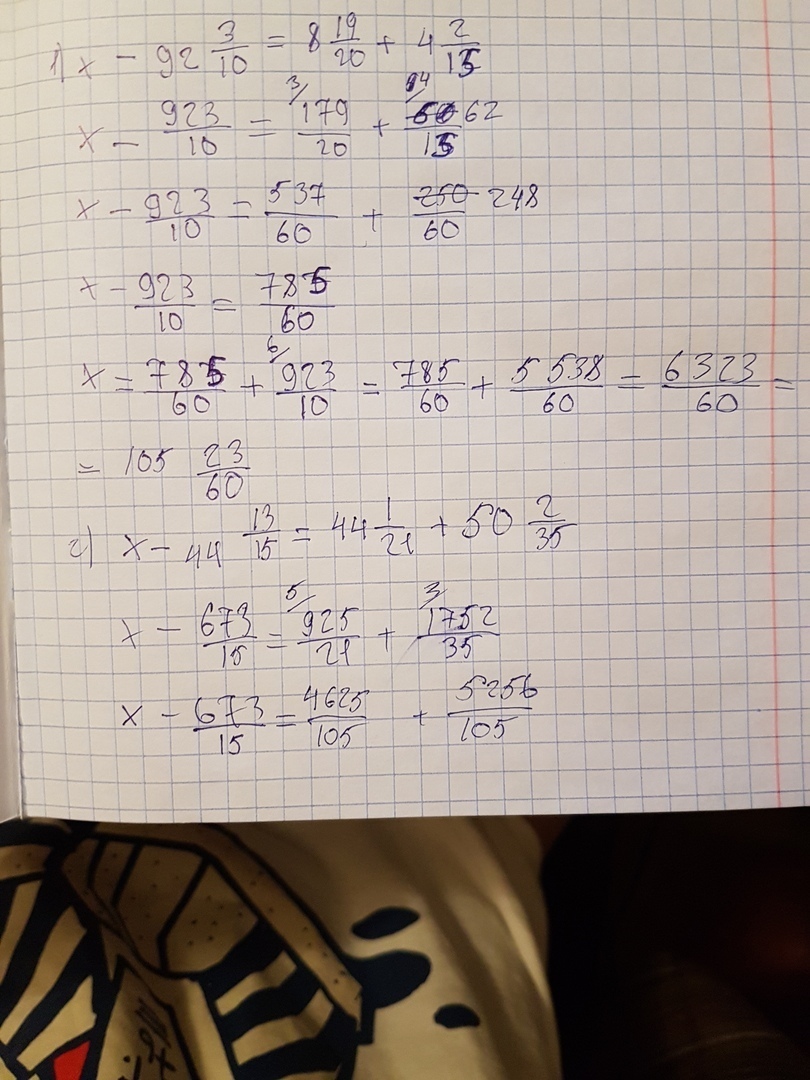 1) x - 92 3/10 = 8 19/20 + 4 2/15
x - 923/10 = 3/ 179/20 + 4/ 62/15
x - 923/10 = 537/60 + 250/60 248
x - 923/10 = 785/60
x = 785/60 + 6/ 923/10 = 785/60 + 5538/60 = 6323/60 =
= 105 23/60
2) x - 44 13/15 = 44 1/21 + 50 2/35
x - 673/15 = 5/ 925/21 + 3/ 1752/35
x - 673/15 = 4625/105 + 5256/105